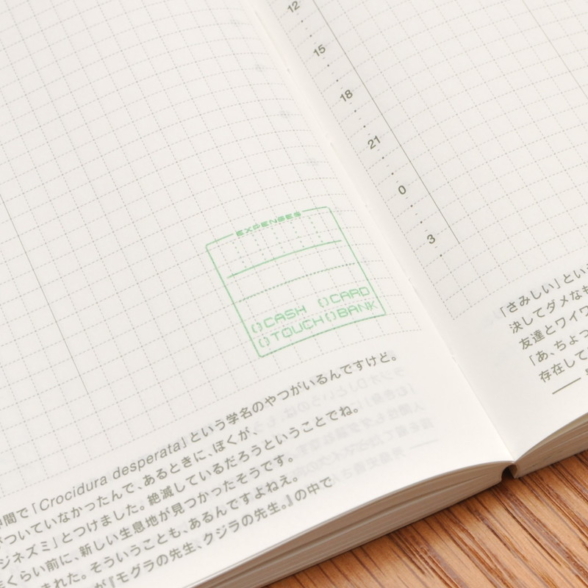 EXPENSES
()CASH ()CARD
()TOUCH()BANK
「Crocidura desperata」という学名のやつがいるんですけど。
ついていなかったんで、あるときに、ぼくが、
ジネズミ」とつけました。絶滅しているだろうということでね。
くらい前に、新しい生息地が見つかったそうです。
れた。そういうことも、あるんですよねえ。
『モグラの先生、クジラの先生。』の中で
12
15
18
21
0
3
「さみしい」とい
決してダメなも
友達とワイワ
「あ、ちょっ
存在して